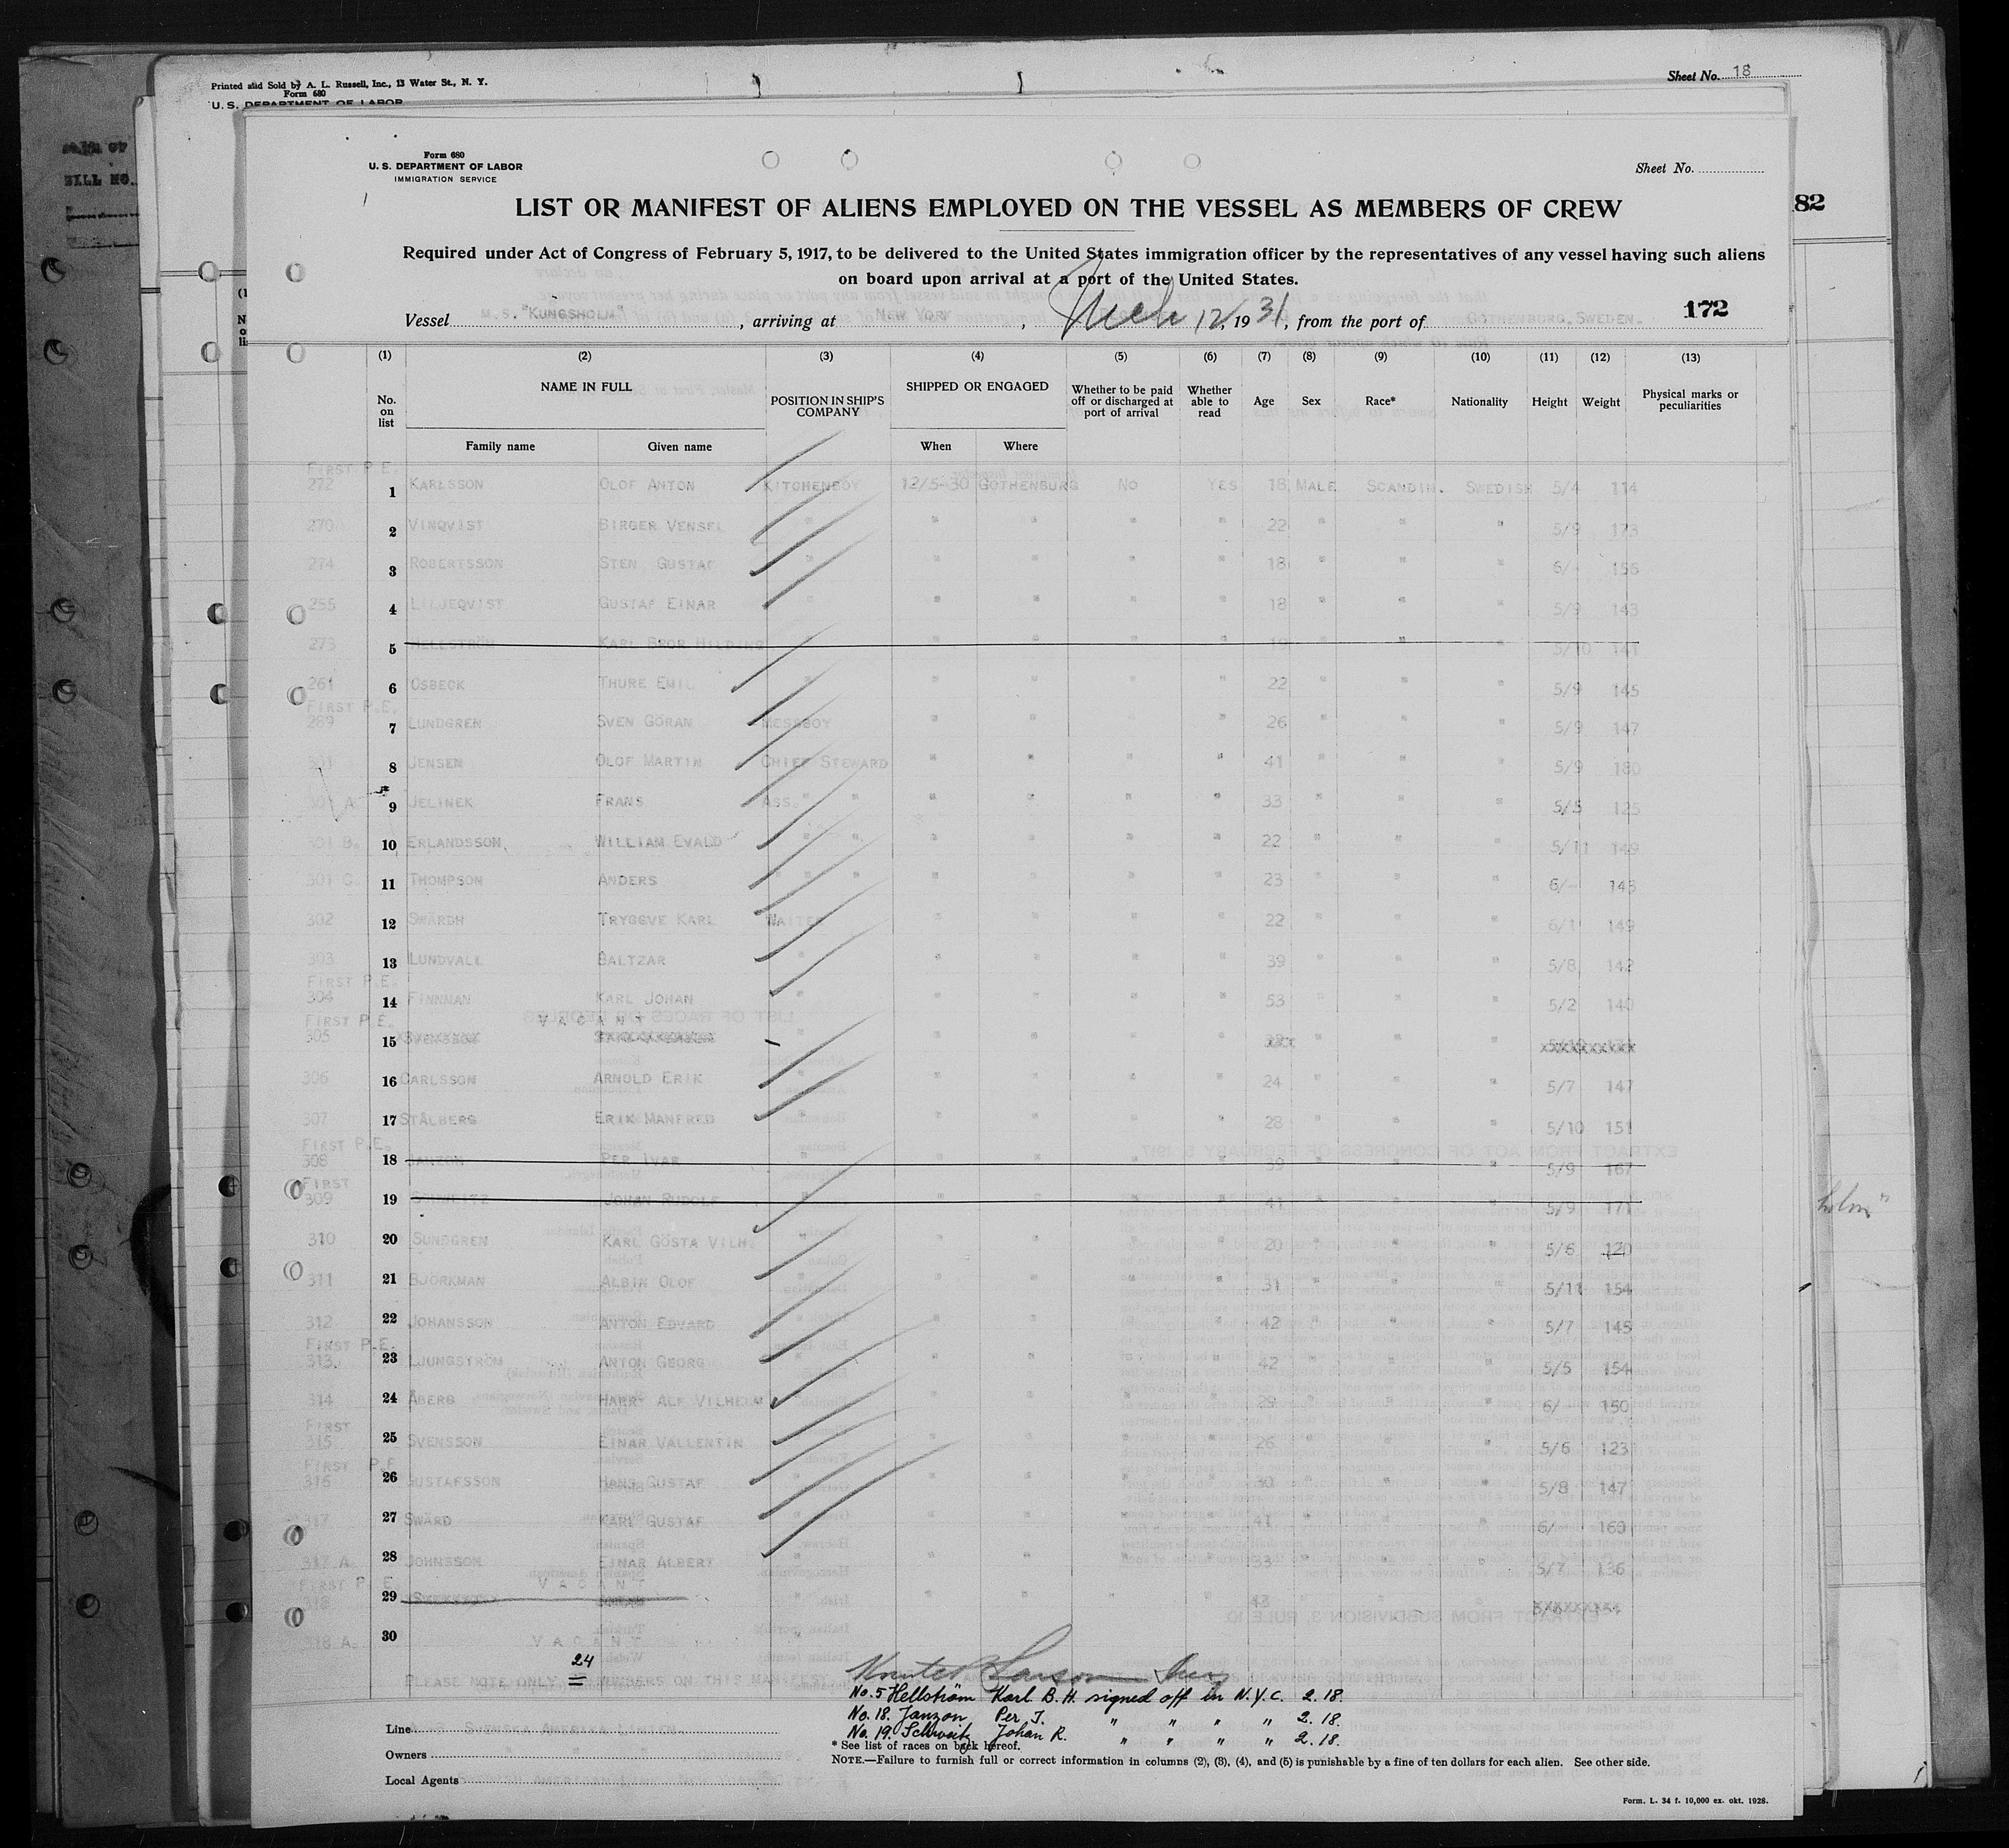 Printed and Sold by A. L. Russell, Inc., 13 Water St., N. Y.
Form 680
U. S. DEPARTMENT OF LABOR
Sheet No. 18
BILL NO.
82
Form 680
U. S. DEPARTMENT OF LABOR
IMMIGRATION SERVICE
Sheet No.
LIST OR MANIFEST OF ALIENS EMPLOYED ON THE VESSEL AS MEMBERS OF CREW
Required under Act of Congress of February 5, 1917, to be delivered to the United States immigration officer by the representatives of any vessel having such aliens
on board upon arrival at a port of the United States.
172
Vessel M.S. "KUNGSHOLM", arriving at NEW YORK, Mch 12, 1931, from the port of GOTHENBURG, SWEDEN.
(1) (2) (3) (4) (5) (6) (7) (8) (9) (10) (11) (12) (13)
No. on list NAME IN FULL POSITION IN SHIP'S COMPANY SHIPPED OR ENGAGED Whether to be paid off or discharged at port of arrival Whether able to read Age Sex Race* Nationality Height Weight Physical marks or peculiarities
Family name Given name When Where
FIRST P.E.
272 1 KARLSSON OLOF ANTON KITCHENBOY 12/5-30 GOTHENBURG NO YES 18 MALE SCANDIN. SWEDISH 5/4 114
270 2 VINQVIST BIRGER VENSEL " " " " " 22 " " " 5/9 173
274 3 ROBERTSSON STEN GUSTAF " " " " " 18 " " " 6/- 156
255 4 LILJEQVIST GUSTAF EINAR " " " " " 18 " " " 5/9 143
273 5 HELLSTRÖM KARL BROR HILDING " " " " " 19 " " " 5/10 141
261 6 OSBECK THURE EMIL " " " " " 22 " " " 5/9 145
FIRST P.E.
289 7 LUNDGREN SVEN GÖRAN MESSBOY " " " " 26 " " " 5/9 147
301 8 JENSEN OLOF MARTIN CHIEF STEWARD " " " " 41 " " " 5/9 180
301 A. 9 JELINEK FRANS ASS. " " " " " 33 " " " 5/5 125
301 B. 10 ERLANDSSON, WILLIAM EVALD " " " " " " 22 " " " 5/11 149
301 C. 11 THOMPSON ANDERS " " " " " " 23 " " " 6/- 143
302 12 SWÄRDH TRYGGVE KARL WAITER " " " " 22 " " " 6/1 149
303 13 LUNDVALL BALTZAR " " " " " 39 " " " 5/8 142
FIRST P.E.
304 14 FINNMAN KARL JOHAN " " " " " 53 " " " 5/2 140
FIRST P.E. VACANT
305 15 SVENSSON " " " " " " " "
306 16 CARLSSON ARNOLD ERIK " " " " " 24 " " " 5/7 147
307 17 STÅLBERG ERIK MANFRED " " " " " 28 " " " 5/10 151
FIRST P.E.
308 18 JANZON PER IVAR " " " " " 39 " " " 5/9 167
FIRST
309 19 SCHWEITZ JOHAN RUDOLF " " " " " 41 " " " 5/9 171
310 20 SUNDGREN KARL GÖSTA VILH. " " " " " 20 " " " 5/6 120
311 21 BJÖRKMAN ALBIN OLOF " " " " " 31 " " " 5/11 154
312 22 JOHANSSON ANTON EDVARD " " " " " 42 " " " 5/7 145
FIRST P.E.
313. 23 LJUNGSTRÖM ANTON GEORG " " " " " 42 " " " 5/5 154
314 24 ÅBERG HARRY ALF VILHELM " " " " " 29 " " " 6/ 150
FIRST
315 25 SVENSSON EINAR VALLENTIN " " " " " 26 " " " 5/6 123
FIRST P.E.
316 26 GUSTAFSSON HANS GUSTAF " " " " " 40 " " " 5/8 147
317 27 SWÄRD KARL GUSTAF " " " " " 41 " " " 6/ 160
317 A. 28 JOHNSSON EINAR ALBERT " " " " " 33 " " " 5/7 136
FIRST P.E. VACANT
318 29 " " " " " 43 " " "
30
318 A. VACANT
24
PLEASE NOTE ONLY MEMBERS ON THIS MANIFEST
No. 5 Hellström Karl B. H. signed off in N.Y.C. 2.18.
No. 18. Janzon Per I. " " " " 2.18.
No. 19. Schweitz Johan R. " " " " 2.18.
Line SVENSKA AMERIKA LINIEN
Owners
Local Agents
* See list of races on back hereof.
NOTE.—Failure to furnish full or correct information in columns (2), (3), (4), and (5) is punishable by a fine of ten dollars for each alien. See other side.
Form. L. 34 f. 10,000 ex. okt. 1928.